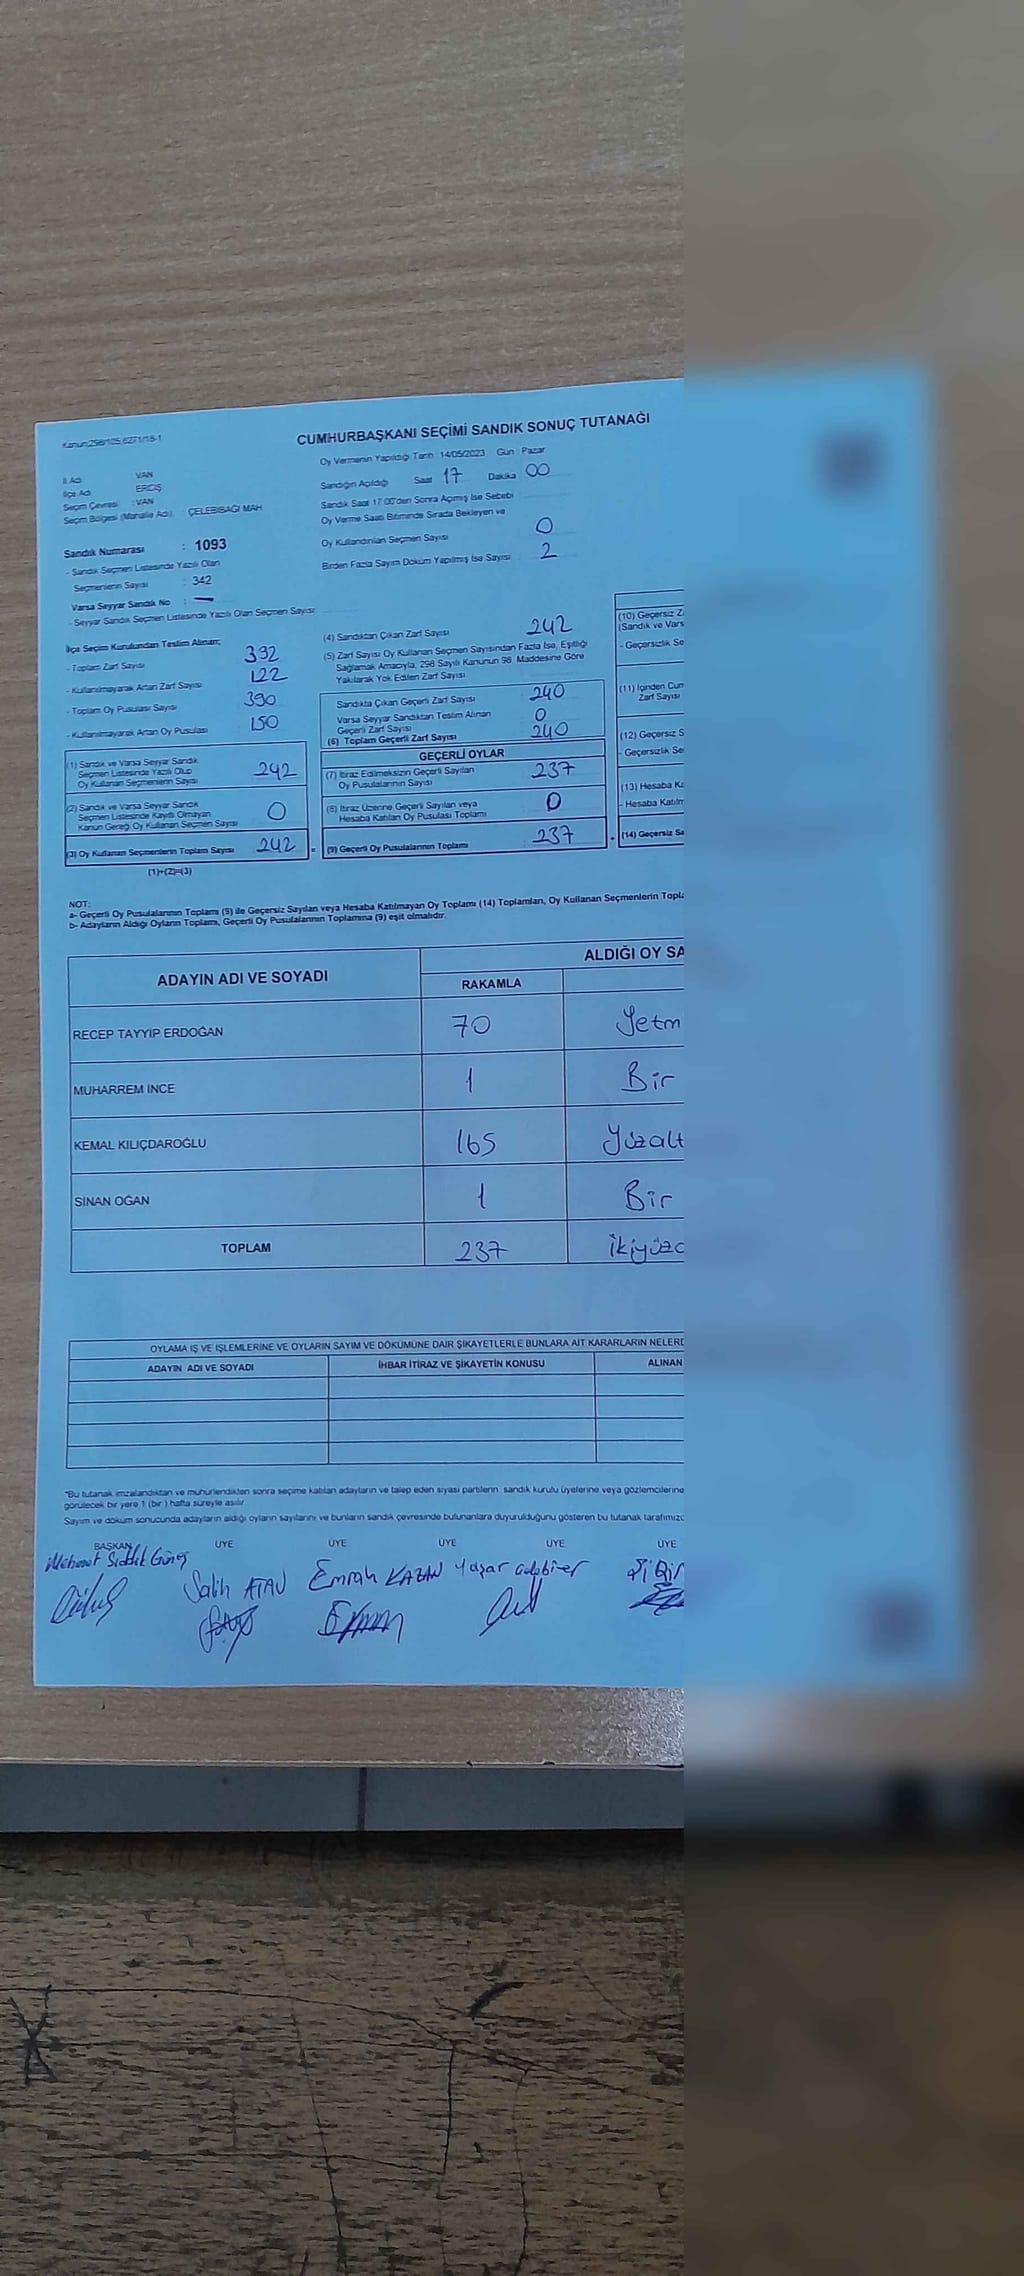 Kanun:298/105,6271/18-1
CUMHURBAŞKANI SEÇİMİ SANDIK SONUÇ TUTANAĞI
Oy Vermenin Yapıldığı Tarih 14/05/2023 Gün Pazar
İl Adı VAN
İlçe Adı ERCİŞ
Seçim Çevresi : VAN
Seçim Bölgesi (Mahalle Adı) ÇELEBİBAĞI MAH
Sandığın Açıldığı Saat 17 Dakika 00
Sandık Saat 17:00'den Sonra Açılmış İse Sebebi :
Oy Verme Saati Bitiminde Sırada Bekleyen ve
Oy Kullandırılan Seçmen Sayısı 0
Birden Fazla Sayım Döküm Yapılmış İse Sayısı : 2
Sandık Numarası : 1093
- Sandık Seçmen Listesinde Yazılı Olan
Seçmenlerin Sayısı : 342
Varsa Seyyar Sandık No : —
- Seyyar Sandık Seçmen Listesinde Yazılı Olan Seçmen Sayısı:
İlçe Seçim Kurulundan Teslim Alınan;
- Toplam Zarf Sayısı 392
- Kullanılmayarak Artan Zarf Sayısı 122
- Toplam Oy Pusulası Sayısı 390
- Kullanılmayarak Artan Oy Pusulası 150
(4) Sandıktan Çıkan Zarf Sayısı 242
(5) Zarf Sayısı Oy Kullanan Seçmen Sayısından Fazla İse, Eşitliği
Sağlamak Amacıyla, 298 Sayılı Kanunun 98. Maddesine Göre
Yakılarak Yok Edilen Zarf Sayısı
Sandıkta Çıkan Geçerli Zarf Sayısı 240
Varsa Seyyar Sandıktan Teslim Alınan
Geçerli Zarf Sayısı 0
(6) Toplam Geçerli Zarf Sayısı 240
(1) Sandık ve Varsa Seyyar Sandık
Seçmen Listesinde Yazılı Olup
Oy Kullanan Seçmenlerin Sayısı 242
(2) Sandık ve Varsa Seyyar Sandık
Seçmen Listesinde Kayıtlı Olmayan
Kanun Gereği Oy Kullanan Seçmen Sayısı 0
(3) Oy Kullanan Seçmenlerin Toplam Sayısı 242 =
(1)+(2)=(3)
GEÇERLİ OYLAR
(7) İtiraz Edilmeksizin Geçerli Sayılan
Oy Pusulalarının Sayısı 237
(8) İtiraz Üzerine Geçerli Sayılan veya
Hesaba Katılan Oy Pusulası Toplamı 0
(9) Geçerli Oy Pusulalarının Toplamı 237
(10) Geçersiz Z
(Sandık ve Vars
- Geçersizlik Se
(11) İçinden Cum
Zarf Sayısı
(12) Geçersiz S
- Geçersizlik Se
(13) Hesaba Ka
- Hesaba Katılm
(14) Geçersiz Sa
NOT:
a- Geçerli Oy Pusulalarının Toplamı (9) ile Geçersiz Sayılan veya Hesaba Katılmayan Oy Toplamı (14) Toplamları, Oy Kullanan Seçmenlerin Topla
b- Adayların Aldığı Oyların Toplamı, Geçerli Oy Pusulalarının Toplamına (9) eşit olmalıdır.
ADAYIN ADI VE SOYADI ALDIĞI OY SA
RAKAMLA
RECEP TAYYİP ERDOĞAN 70 Yetm
MUHARREM İNCE 1 Bir
KEMAL KILIÇDAROĞLU 165 Yüzalt
SİNAN OĞAN 1 Bir
TOPLAM 237 İkiyüzo
OYLAMA İŞ VE İŞLEMLERİNE VE OYLARIN SAYIM VE DÖKÜMÜNE DAİR ŞİKAYETLERLE BUNLARA AİT KARARLARIN NELERD
ADAYIN ADI VE SOYADI İHBAR İTİRAZ VE ŞİKAYETİN KONUSU ALINAN
"Bu tutanak imzalandıktan ve mühürlendikten sonra seçime katılan adayların ve talep eden siyasi partilerin, sandık kurulu üyelerine veya gözlemcilerine
görülecek bir yere 1 (bir ) hafta süreyle asılır
Sayım ve döküm sonucunda adayların aldığı oyların sayılarını ve bunların sandık çevresinde bulunanlara duyurulduğunu gösteren bu tutanak tarafımızc
BAŞKAN ÜYE ÜYE ÜYE ÜYE ÜYE
Mehmet Sıddık Güneş Salih ATAV Emrah KAZAN Yaşar